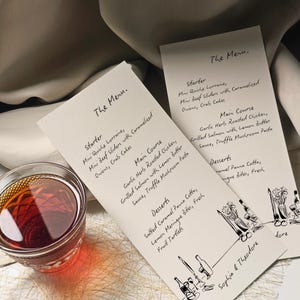 The Menu.
Starter
Mini Quiche Lorraine,
Mini Beef Sliders with Caramelized
Onions, Crab Cakes
Main Course
Garlic Herb Roasted Chicken,
Grilled Salmon with Lemon Butter
Sauce, Truffle Mushroom Pasta
Desserts
Salted Caramel Panna Cotta,
Lemon Meringue Bites, Fresh
Fruit Tartlets
Sophie & Theodore
The Menu.
Starter
Mini Quiche Lorraine,
Mini Beef Sliders with Caramelized
Onions, Crab Cakes
Main Course
Garlic Herb Roasted Chicken,
Grilled Salmon with Lemon Butter
Sauce, Truffle Mushroom Pasta
Desserts
Caramel Panna Cotta,
Meringue Bites, Fresh